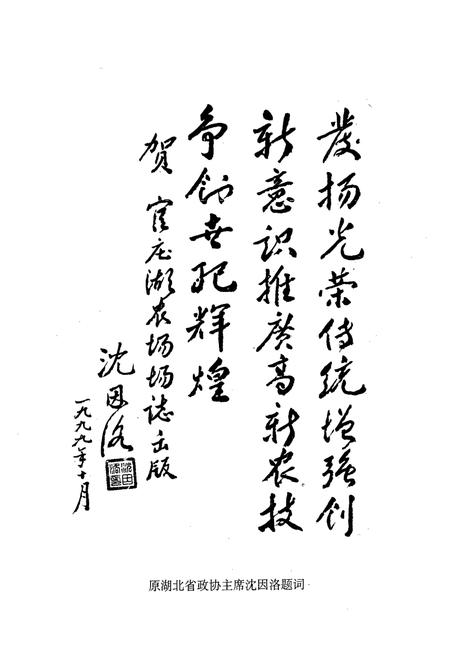 發扬光荣传统增强创
新意识推廣高新农技
争创世纪辉煌
贺官庄湖农场场誌出版
沈因洛
一九九九年十月
原湖北省政协主席沈因洛题词